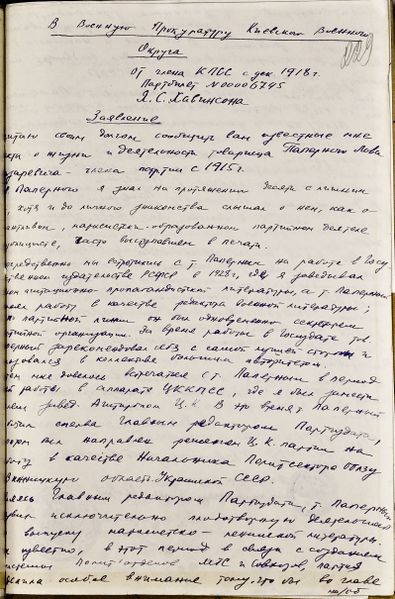 В Военную Прокуратуру Киевского Военного
Округа
от члена КПСС с дек. 1918 г.
Партбилет N00006745
Я. С. Хавинсона
Заявление
своим долгом сообщить вам известные мне
о жизни и деятельности товарища Паперного Льва
- члена партии с 1915 г.
Паперного я знал на протяжении десяти с лишним
, хотя и до личного знакомства слышал о нем, как о
, марксистски-образованном партийном деятеле
, часто выступавшем в печати.
мы встретились с т. Паперным на работе в Госу
издательстве РСФСР в 1928 г., где я заведовал
агитационно-пропагандистской литературы, а т. Паперный
работу в качестве редактора военной литературы;
по партийной линии он был одновременно секретарем
организации. За время работы в Госиздате тов.
зарекомендовал себя с самой лучшей стороны и
в коллективе большим авторитетом.
мне довелось встречаться с т. Паперным в период
работы в аппарате ЦК КПСС, где я был замести
завед. Агитпропом Ц.К. В то время т. Паперный
сперва Главным редактором Партиздата,
был направлен решением Ц.К. партии на
в качестве Начальника Политсектора
Винницкую область Украинской ССР.
Главным редактором Партиздата, т. Паперный
исключительно плодотворную деятельность
выпуску марксистско-ленинской литературы.
известно, в этот период в связи с созданием
Политотделов МТС и Совхозов, партия
особое внимание тому, что бы во главе